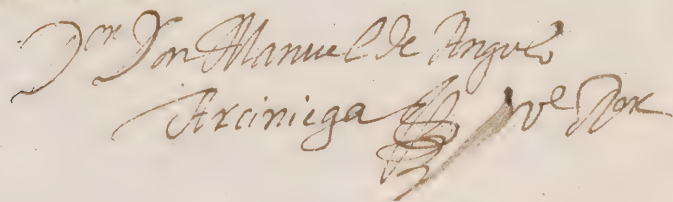 Dor Don Manuel de Angulo
Arciniega